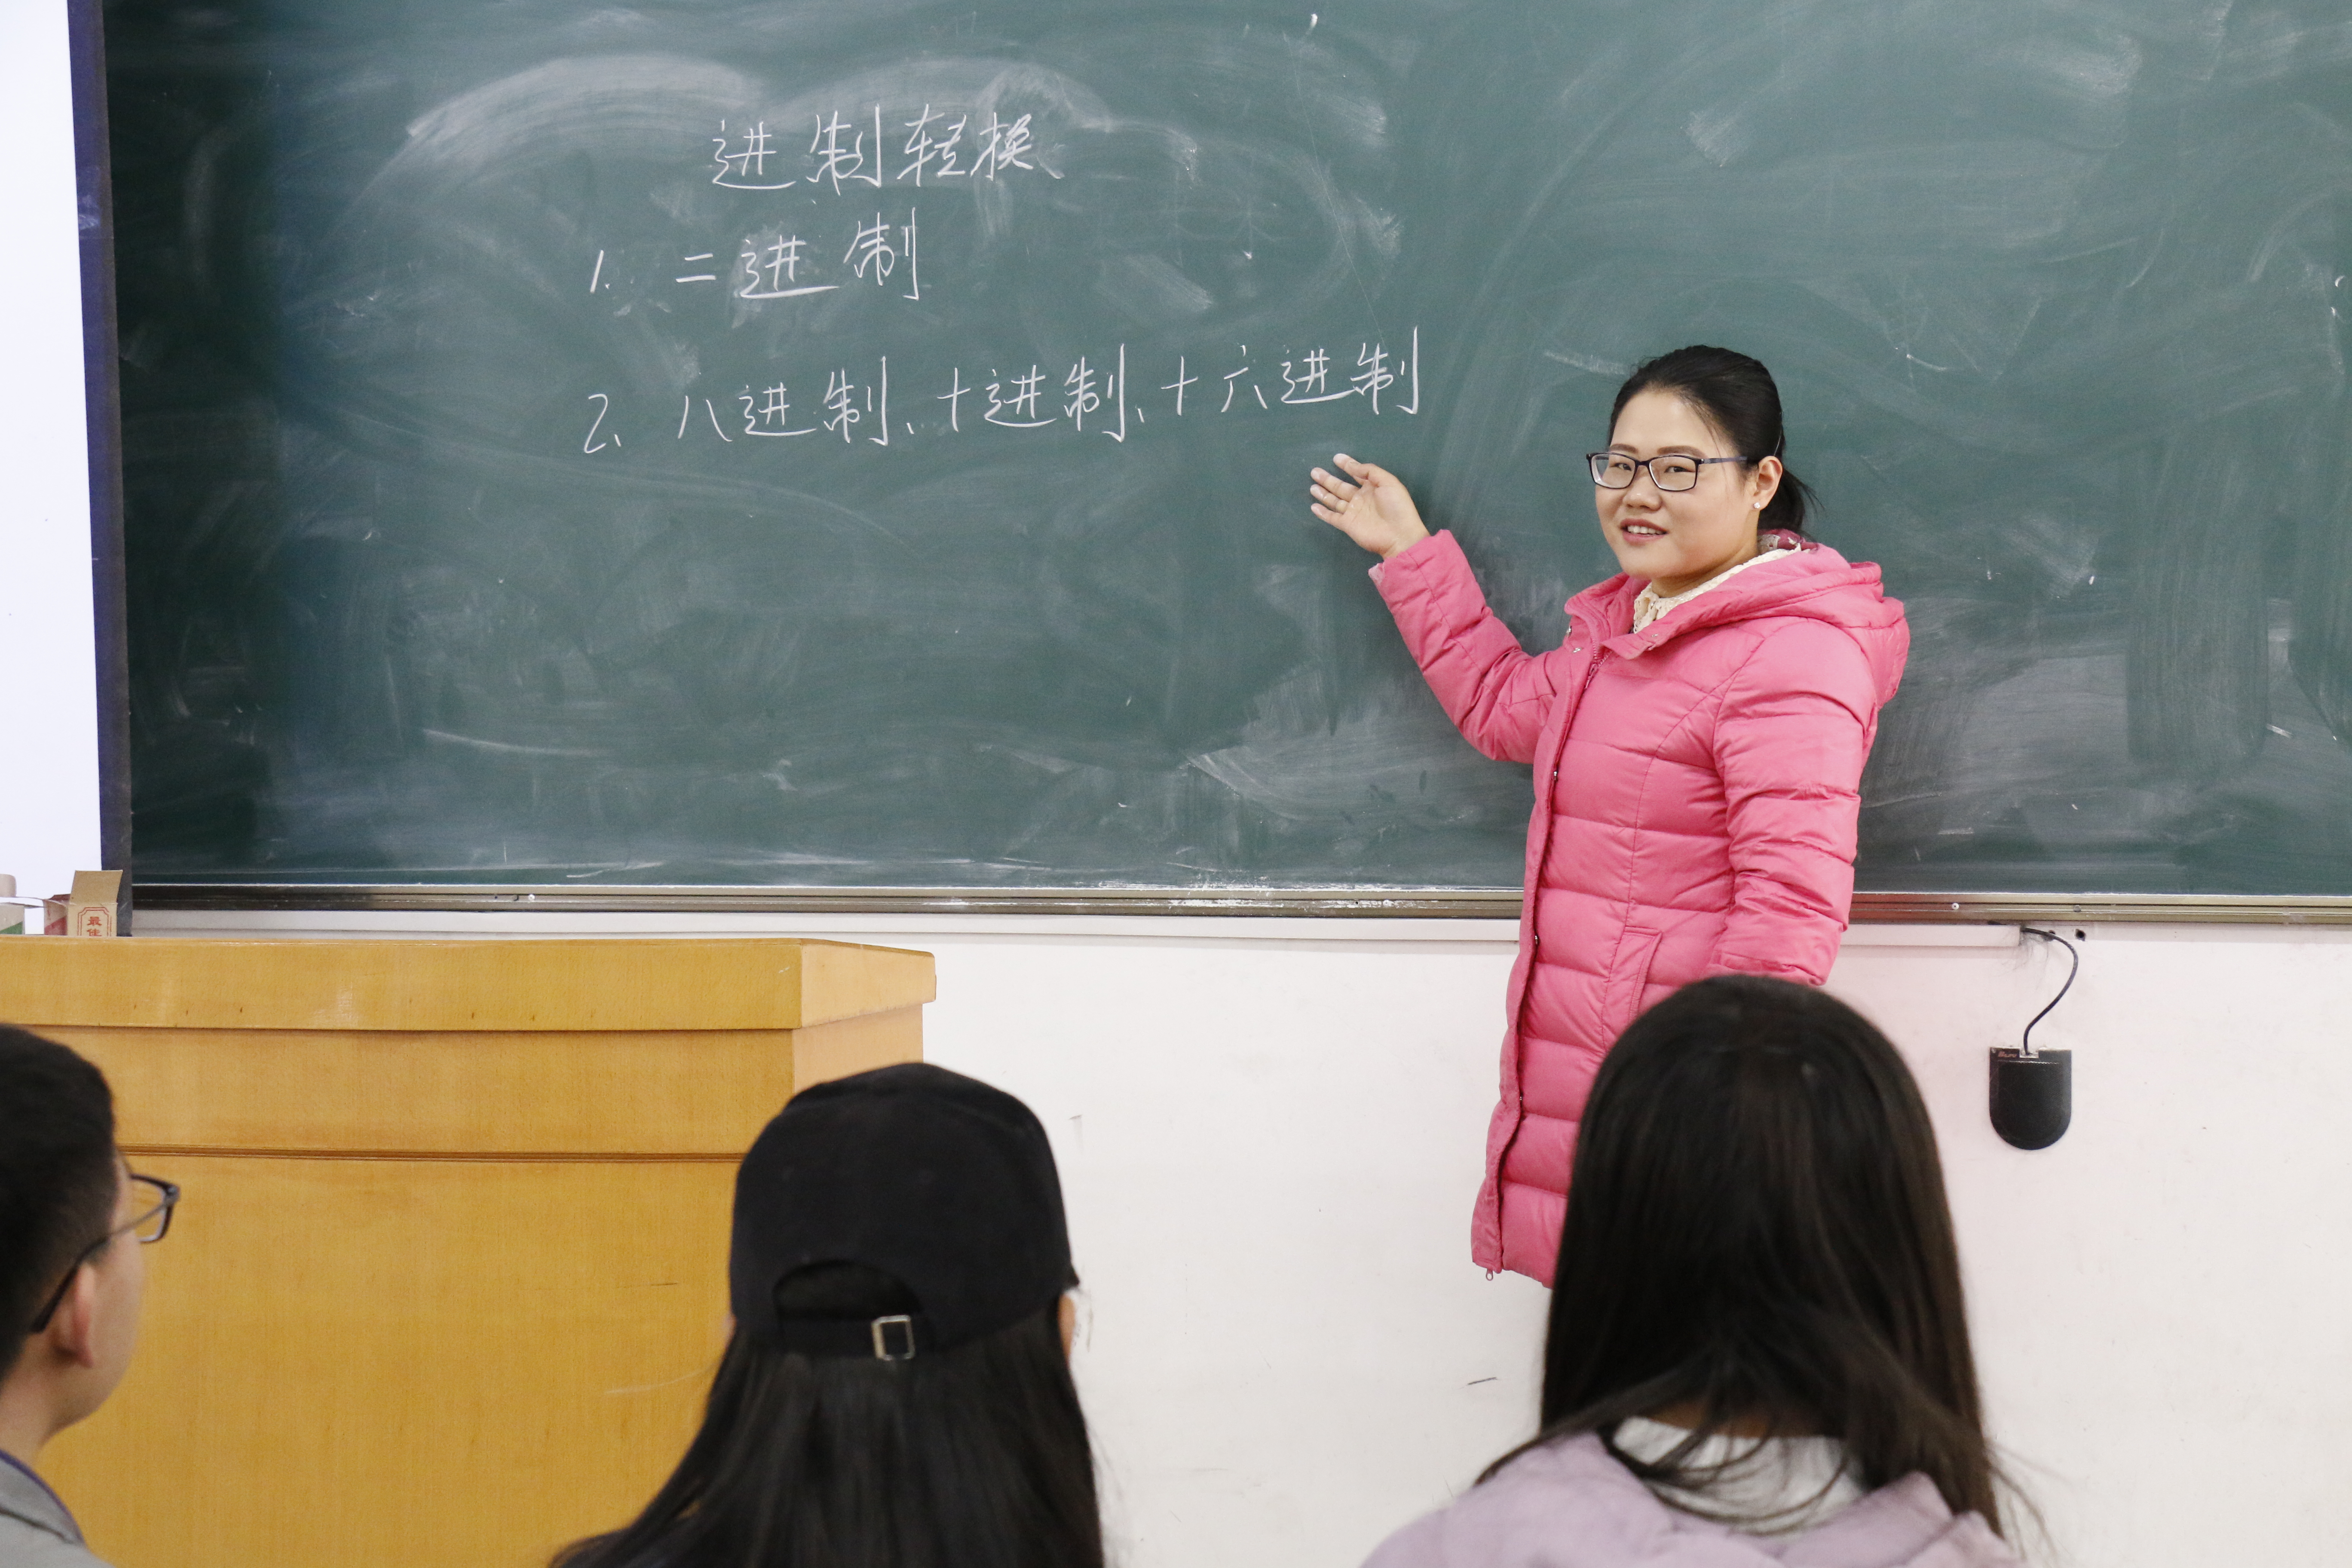 进制转换
1. 二进制
2、八进制、十进制、十六进制
最佳